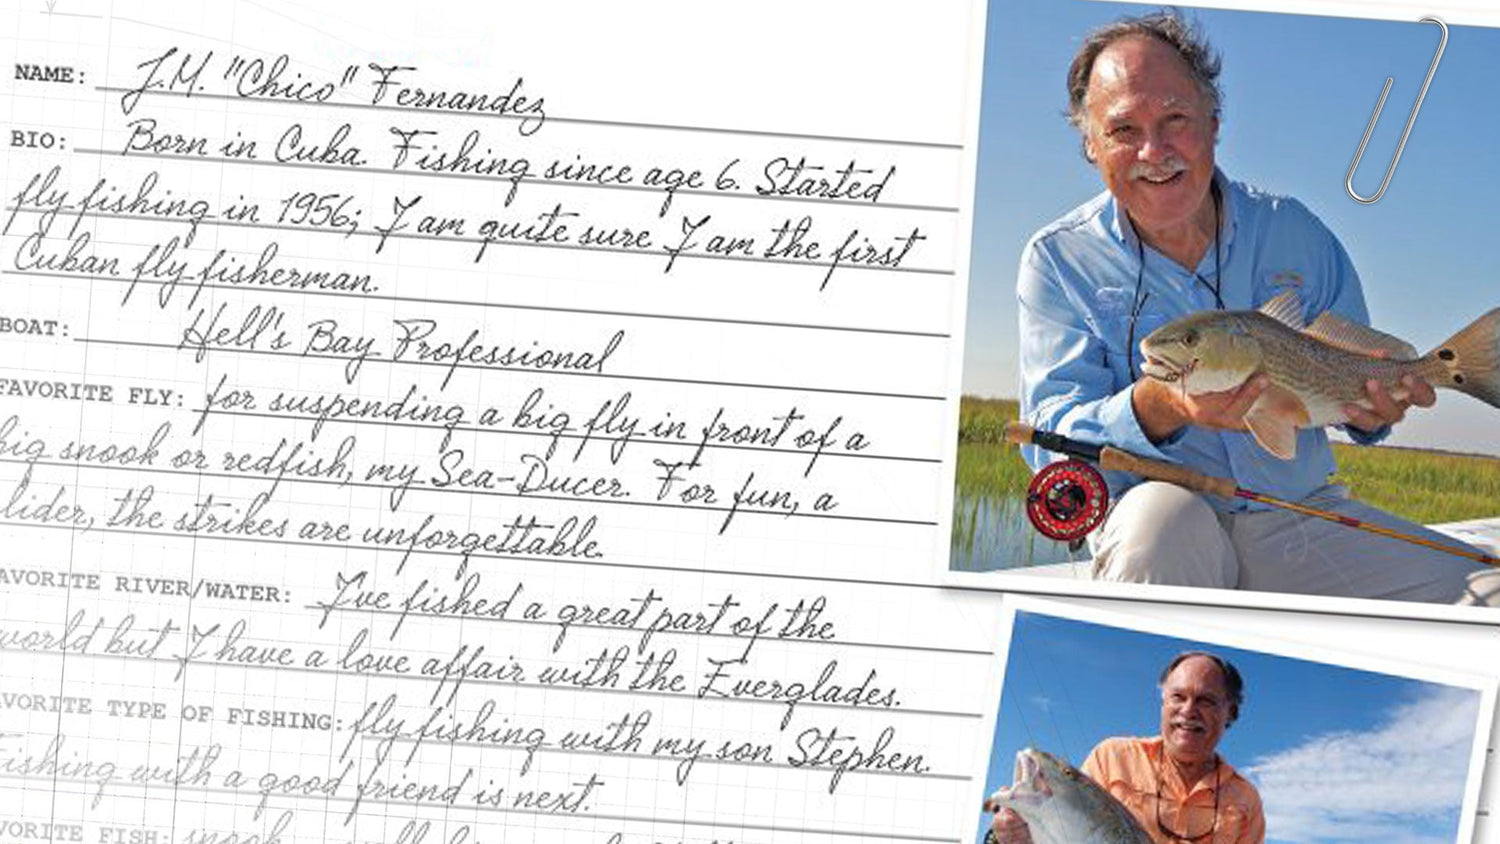 NAME: J.M. "Chico" Fernandez
BIO: Born in Cuba. Fishing since age 6. Started
fly fishing in 1956; I am quite sure I am the first
Cuban fly fisherman.
BOAT: Hell's Bay Professional
FAVORITE FLY: for suspending a big fly in front of a
big snook or redfish, my Sea-Ducer. For fun, a
lider, the strikes are unforgettable.
AVORITE RIVER/WATER: I've fished a great part of the
world but I have a love affair with the Everglades.
AVORITE TYPE OF FISHING: fly fishing with my son Stephen.
Fishing with a good friend is next.
VORITE FISH: snook